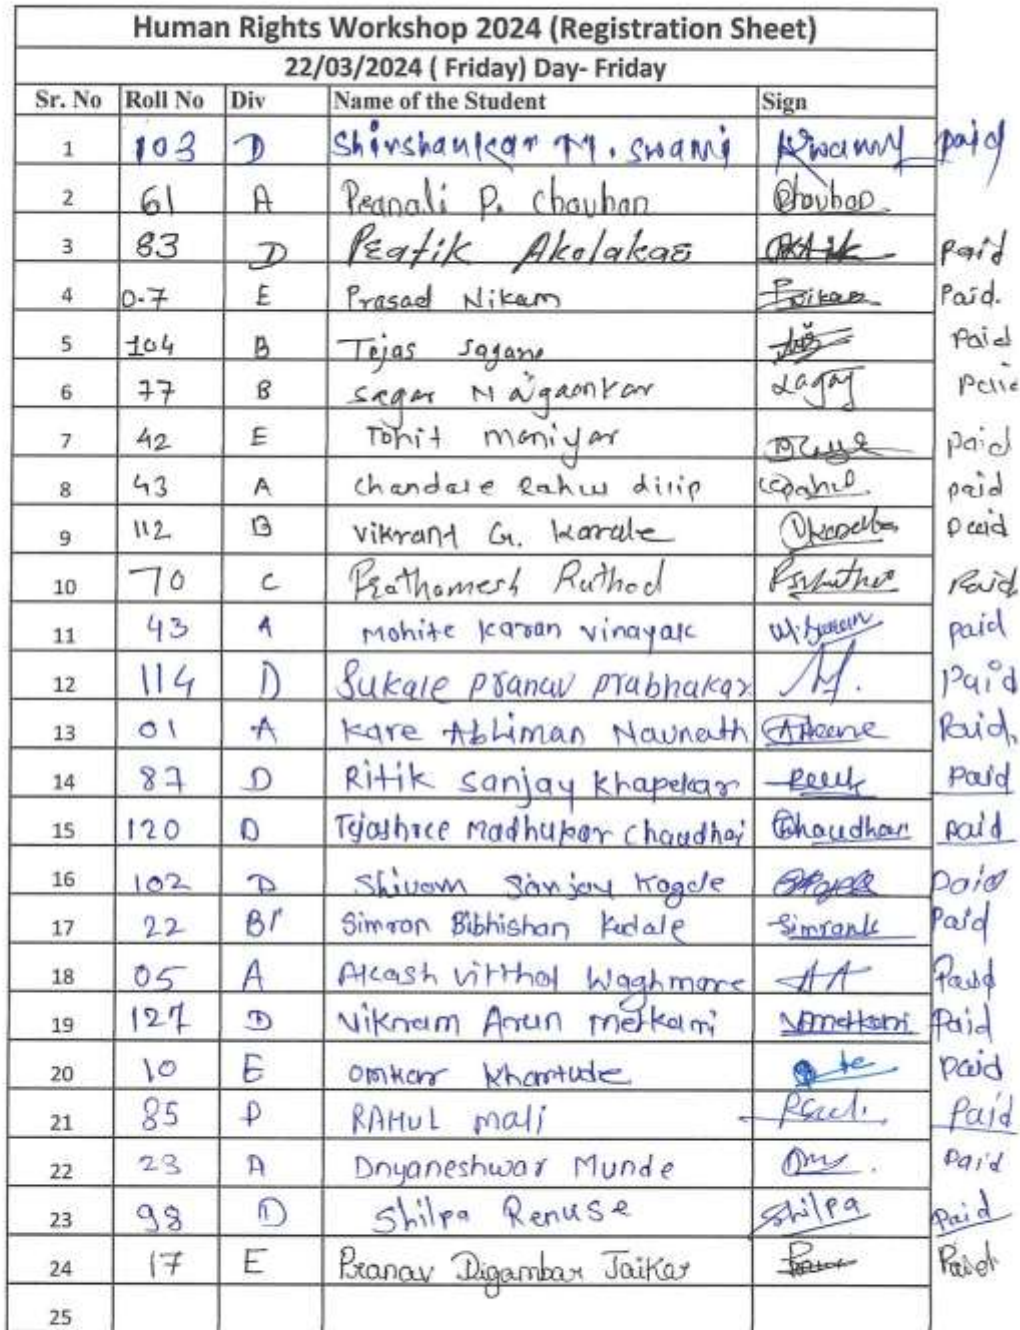 Human Rights Workshop 2024 (Registration Sheet)
22/03/2024 ( Friday) Day- Friday
Sr. No Roll No Div Name of the Student Sign
1 103 D Shivshankar M. swami paid
2 61 A Pranali P. Chouhan Chouhan
3 83 D Pratik Akolakar Paid
4 0-7 E Prasad Nikam Paid.
5 104 B Tejas Sagane Paid
6 77 B Sagar Naigaonkar Paid
7 42 E Tohit maniyar paid
8 43 A Chandale Rahul dilip paid
9 112 B Vikrant G. Karale paid
10 70 C Prathamesh Rathod Paid
11 43 A Mohite Karan vinayak paid
12 114 D Sukale Pranav Prabhakar Paid
13 01 A Kare Abhiman Navnath Paid.
14 87 D Ritik Sanjay Khapekar Paid
15 120 D Tejashree Madhukar Chaudhari Chaudhari paid
16 102 D Shivam Sanjay Kogde paid
17 22 B Simran Bibhishan Kedale Simrank Paid
18 05 A Akash vitthal Waghmare AA Paid
19 127 D Vikram Arun metkari Vmetkari Paid
20 10 E Omkar Khartude Paid
21 85 D RAHUL mali Paid
22 23 A Dnyaneshwar Munde Paid
23 98 D Shilpa Renuse Shilpa Paid
24 17 E Pranav Digambar Jaikar Paid
25